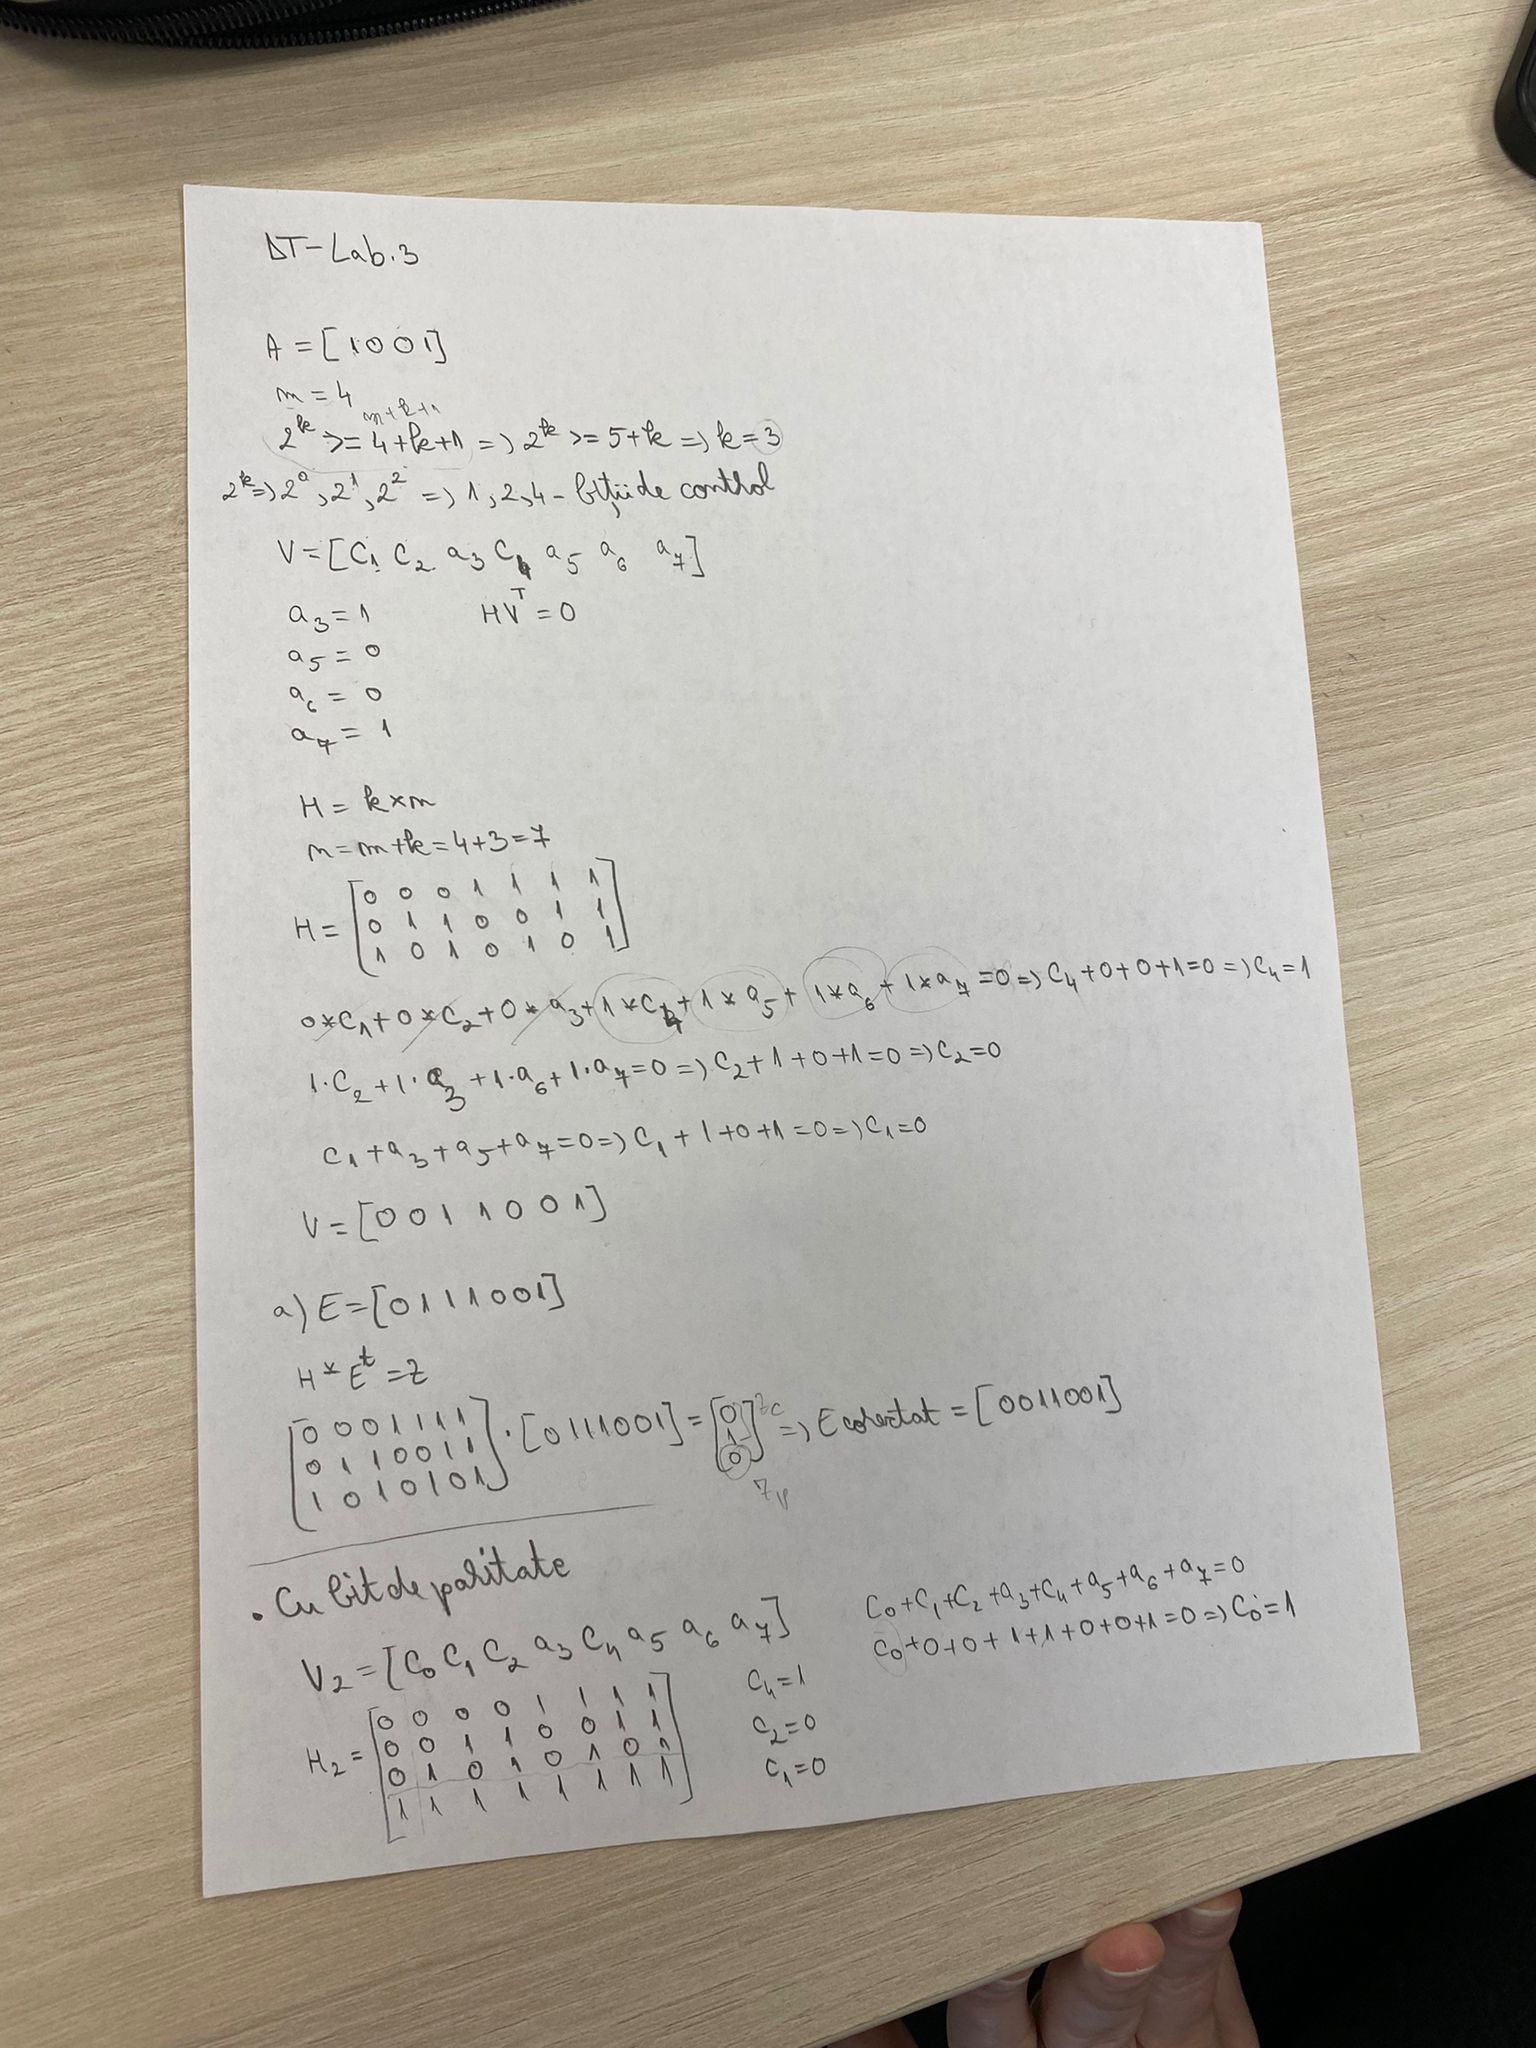 DT-Lab.3
A = [1 0 0 1]
m = 4
m+k+1
2^k >= 4+k+1 => 2^k >= 5+k => k = 3
2^k => 2^0, 2^1, 2^2 => 1, 2, 4 - biții de control
V = [C1 C2 a3 C4 a5 a6 a7]
a3 = 1 HV^T = 0
a5 = 0
a6 = 0
a7 = 1
H = k×n
n = m+k = 4+3 = 7
H = [0 0 0 1 1 1 1
0 1 1 0 0 1 1
1 0 1 0 1 0 1]
0*C1+0*C2+0*a3+1*C4+1*a5+1*a6+1*a7=0 => C4+0+0+1=0 => C4=1
1·C2+1·a3+1·a6+1·a7=0 => C2+1+0+1=0 => C2=0
C1+a3+a5+a7=0 => C1+1+0+1=0 => C1=0
V = [0 0 1 1 0 0 1]
a) E = [0 1 1 1 0 0 1]
H * E^t = Z
[0 0 0 1 1 1 1
0 1 1 0 0 1 1
1 0 1 0 1 0 1] · [0111001] = [0 1 0] zc => E corectat = [0011001]
zp
• Cu bit de paritate
V2 = [C0 C1 C2 a3 C4 a5 a6 a7] C0+C1+C2+a3+C4+a5+a6+a7=0
C0+0+0+1+1+0+0+1=0 => C0=1
H2 = [0 0 0 0 1 1 1 1 C4=1
0 0 1 1 0 0 1 1 C2=0
0 1 0 1 0 1 0 1 C1=0
1 1 1 1 1 1 1 1]